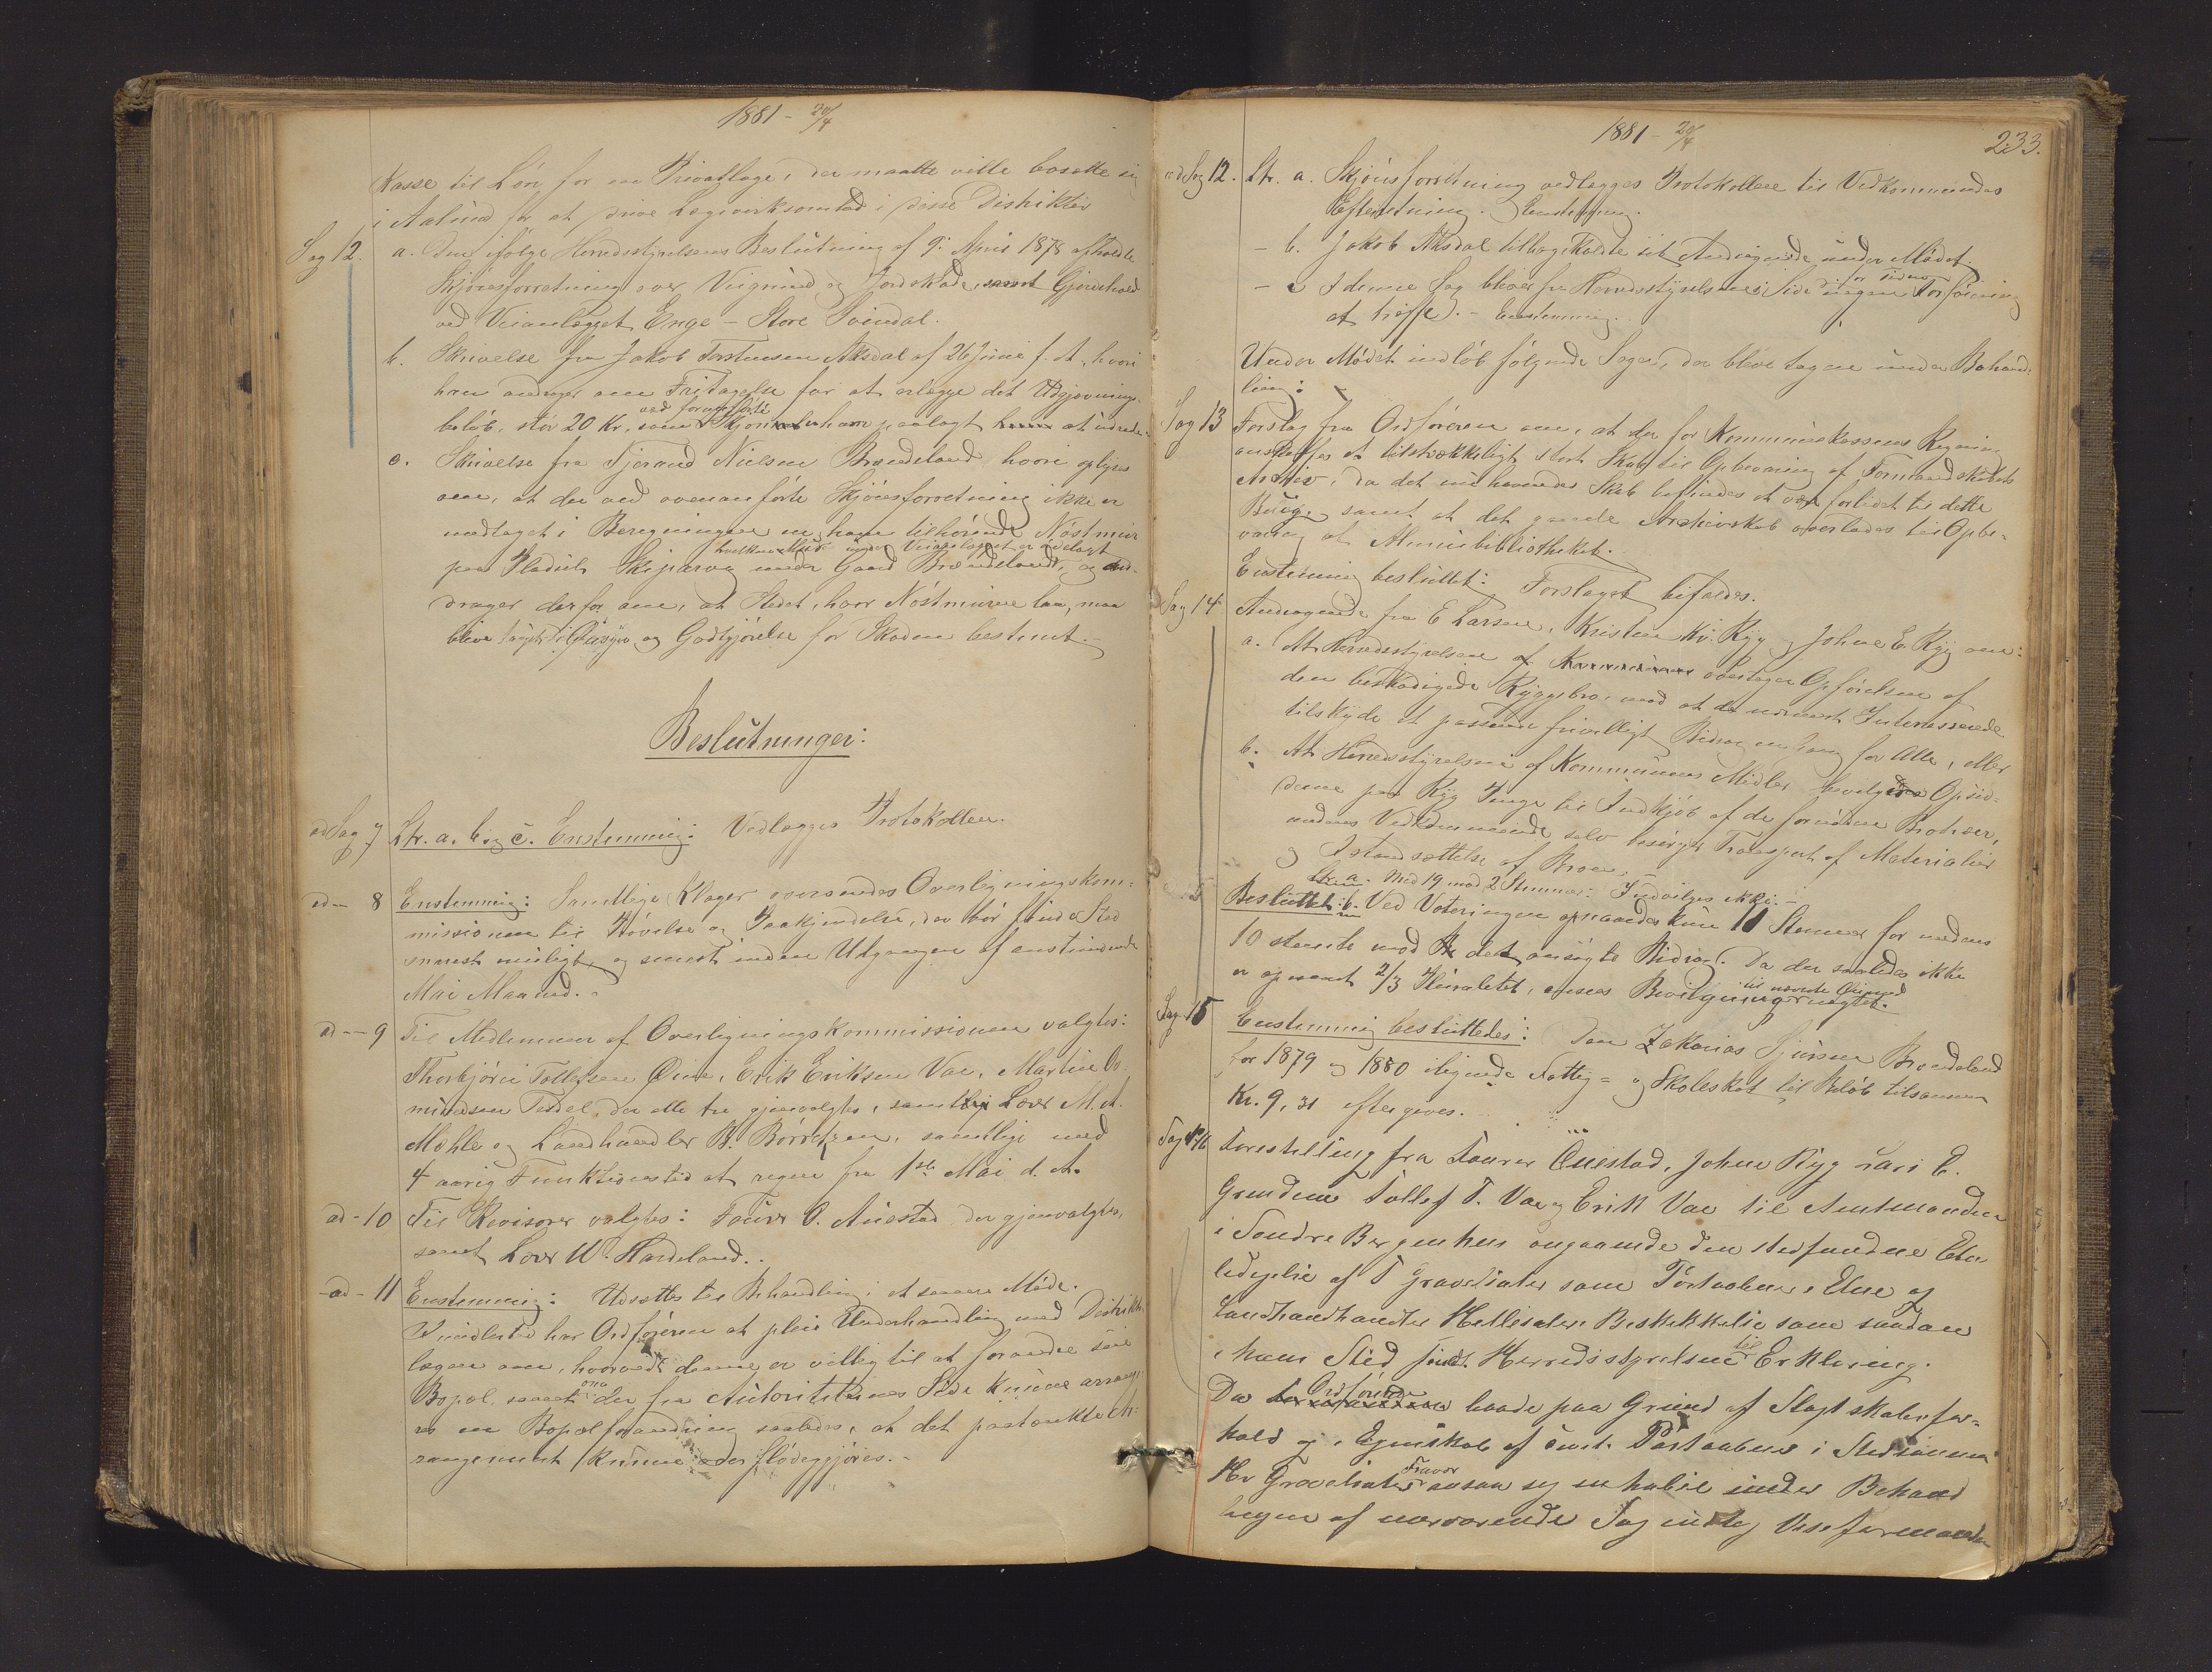 1881 - 20/4
Kasse til Løn for en Privatlæge, der maatte ville bosætte sig
i Aalund for at drive Lægevirksomhed i disse Distrikter
Sag 12. a. Den ifølge Herredsstyrelsens Beslutning af 9. April 1878 afholdte
Skjønsforretning over Veigrund og Jordskade, samt Gjerdehold
ved Veianlægget Enge - Store Svindal.
b. Skrivelse fra Jakob Torstensen Aksdal af 26 Juni f. A., hvori
han andrager om Fritagelse for at erlægge det Udgjevnings-
beløb, stor 20 Kr, som ved fornævnte Skjøn er ham paalagt at udrede.
c. Skrivelse fra Tjerand Nielsen Brendeland hvori oplyses
om, at der ved ovenanførte Skjønsforretning ikke er
medtaget i Beregningen en ham tilhørende Nøstmur
hvilken Mur under Veianlægget er ødelagt
paa Pladsen Skiparvig under Gaard Brendeland, og an-
drager derfor om, at Stedet, hvor Nøstmuren laa, maa
blive taget i Øiesyn og Godtgjørelse for Skaden bestemt.
Beslutninger:
ad Sag 7 Ltr. a. b og c. Enstemmig: Vedlægges Protokollen.
ad - 8 Enstemmig: Samtlige Klager oversendes Overligningskom-
missionen til Prøvelse og Paakjendelse, der bør finde Sted
snarest muligt, og senest inden Udgangen af anstundende
Mai Maaned.
ad - 9 Til Medlemmer af Overligningskommissionen valgtes:
Thorbjørn Tollefsen Øine, Erik Eriksen Vae, Martin Os-
mundsen Tesdal, der alle tre gjenvalgtes, samt Lars M. A.
Mæhle og Landhandler B. Børretzen, samtlige med
4 aarig Funktionstid at regne fra 1ste Mai d. A.
ad - 10 Til Revisorer valgtes: Faurer O. Auestad der gjenvalgtes,
samt Lars W. Hardeland.
ad - 11 Enstemmig: Udsættes til Behandling i et senere Møde.
Imidlertid har Ordføreren at pleie Underhandling med Distrikts-
lægen om, hvorvidt denne er villig til at forandre sin
Bopæl, samt om der fra Autoriteternes Side kunne arrange-
res en Bopælforandring saaledes, at det paatænkte Ar-
rangement kunne iverksættes.
1881 - 20/4
233.
ad Sag 12. Ltr. a. Skjønsforretning vedlægges Protokollen til Vedkommendes
Efterretning. Enstemmig.
- b. Jakob Aksdal tilbagekaldte sit Andragende under Mødet.
- c I denne Sag bliver fra Herredsstyrelsens Side for Tiden ingen Forføining
at træffe. - Enstemmig.
Under Mødet indløb følgende Sager, der bleve tagne under Behand-
ling:
Sag 13 Forslag fra Ordføreren om, at der for Kommunekassens Regning
anskaffes et tilstrækkeligt stort Skab til Opbevaring af Formandskabets
Arkiv, da det nuhavende Skab befindes at være for lidet til dette
Brug, samt at det gamle Arkivskab overlades til Opbe-
varing af Almuebibliotheket.
Enstemmig besluttet: Forslaget bifaldes.
Sag 14 Andragende fra E Larsen, Kristen Kr. Ryg, Johne E. Ryg om:
a. At Herredsstyrelsen overtager Opførelsen af
den beskadigede Ryggebro, mod at de nærmest Interesserede
tilskyde et passende frivilligt Bidrag en Gang for Alle, eller
b. At Herredsstyrelsen af Kommunens Midler bevilger Opsid-
derne paa Ryg Penge til Indkjøb af de fornødne Brotræer,
medens Vedkommende selv besørger Transport af Materialier
og Istandsættelse af Broen.
Ltr. a. Med 19 mod 2 Stemmer: Indvilges ikke.
Besluttet: b. Ved Voteringen opnaaedes kun 11 Stemmer for medens
10 stemte mod det ansøgte Bidrag. Da der saaledes ikke
er opnaaet 2/3 Pluralitet, ansees Bevilgning til nævnte Øiemed nægtet.
Sag 15 Enstemmig besluttedes: Den Zakarias Sjursen Brendeland
for 1879 og 1880 ilignede Fattig- og Skoleskat til Beløb tilsammen
Kr. 9,31 eftergives.
Sag 16 Forestilling fra Faurer Øuestad, Johne Ryg Lars E.
Grinden Tollef T. Vae og Erik Vae til Amtmanden
i Søndre Bergenhus angaaende den stedfundne Ent-
ledigelse af T Gravelsæter som Postaabner i Etne og
Landhandler Hellesæters Beskikkelse som saadan
i hans Sted sendt Herredsstyrelsen til Erklæring.
Da Ordføreren baade paa Grund af Slægtskabsfor-
hold og i Egenskab af const. Postaabner i Stedet
Hr Gravelsæters Fravær ansaa sig inhabil under Behand
lingen af nærværende Sag indtog Viseformanden